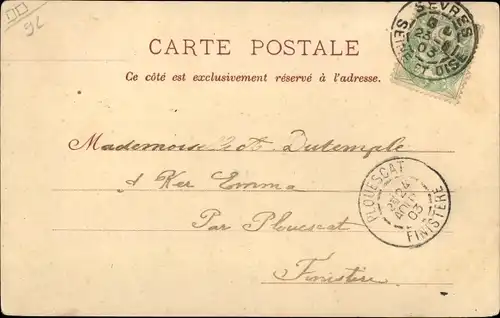 92
SÈVRES
23
03
SEINE ET OISE
CARTE POSTALE
Ce côté est exclusivement réservé à l'adresse.
Mademoiselle Dutemple
Ker Emma
Par Plouescat
Finistère
PLOUESCAT
24
AOUT
03
FINISTERE